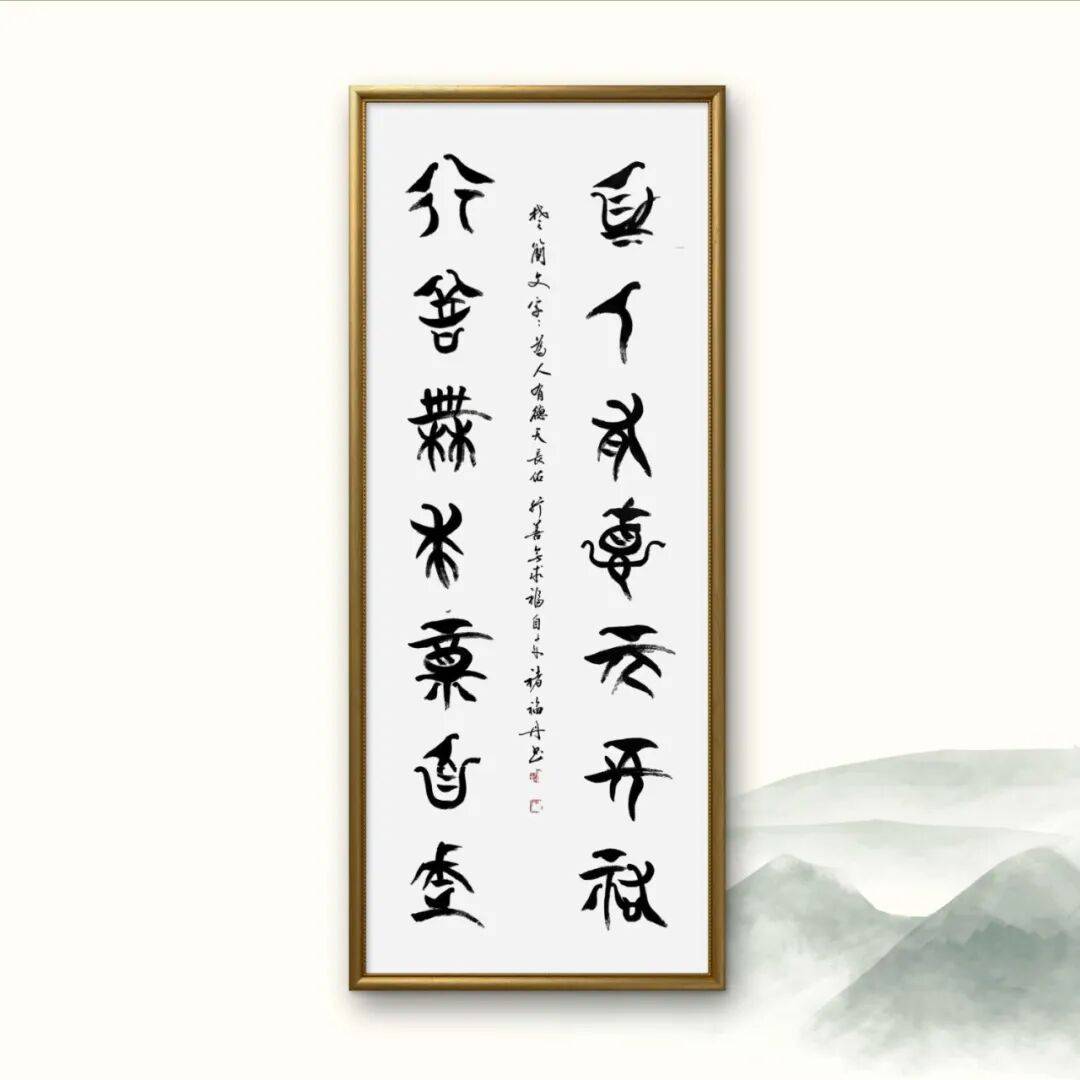 為人有德天長佑
楚簡文字為人有德天長佑行善无求福自来褚福丹书
行善無求福自來